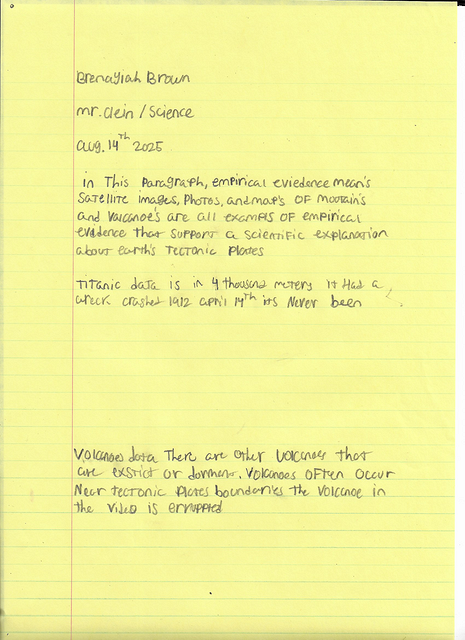 Brenayiah Brown
mr. clein / Science
aug. 14th 2025
in This Paragraph, empirical eviedence mean's
Satellite images, Photos, and map's OF moutain's
and Valcanoe's are all exampls OF empirical
evidence that support a scientific explanation
about earth's Tectonic Plates
Titanic data is in 4 thousand meters it Had a
wreck crashed 1912 april 14th its Never been
Volcanoes data There are other volcanoes that
are exstict or dormant. Volcanoes OFten Occur
Near tectonic Plates boundaries the Volcanoe in
the video is erruppted